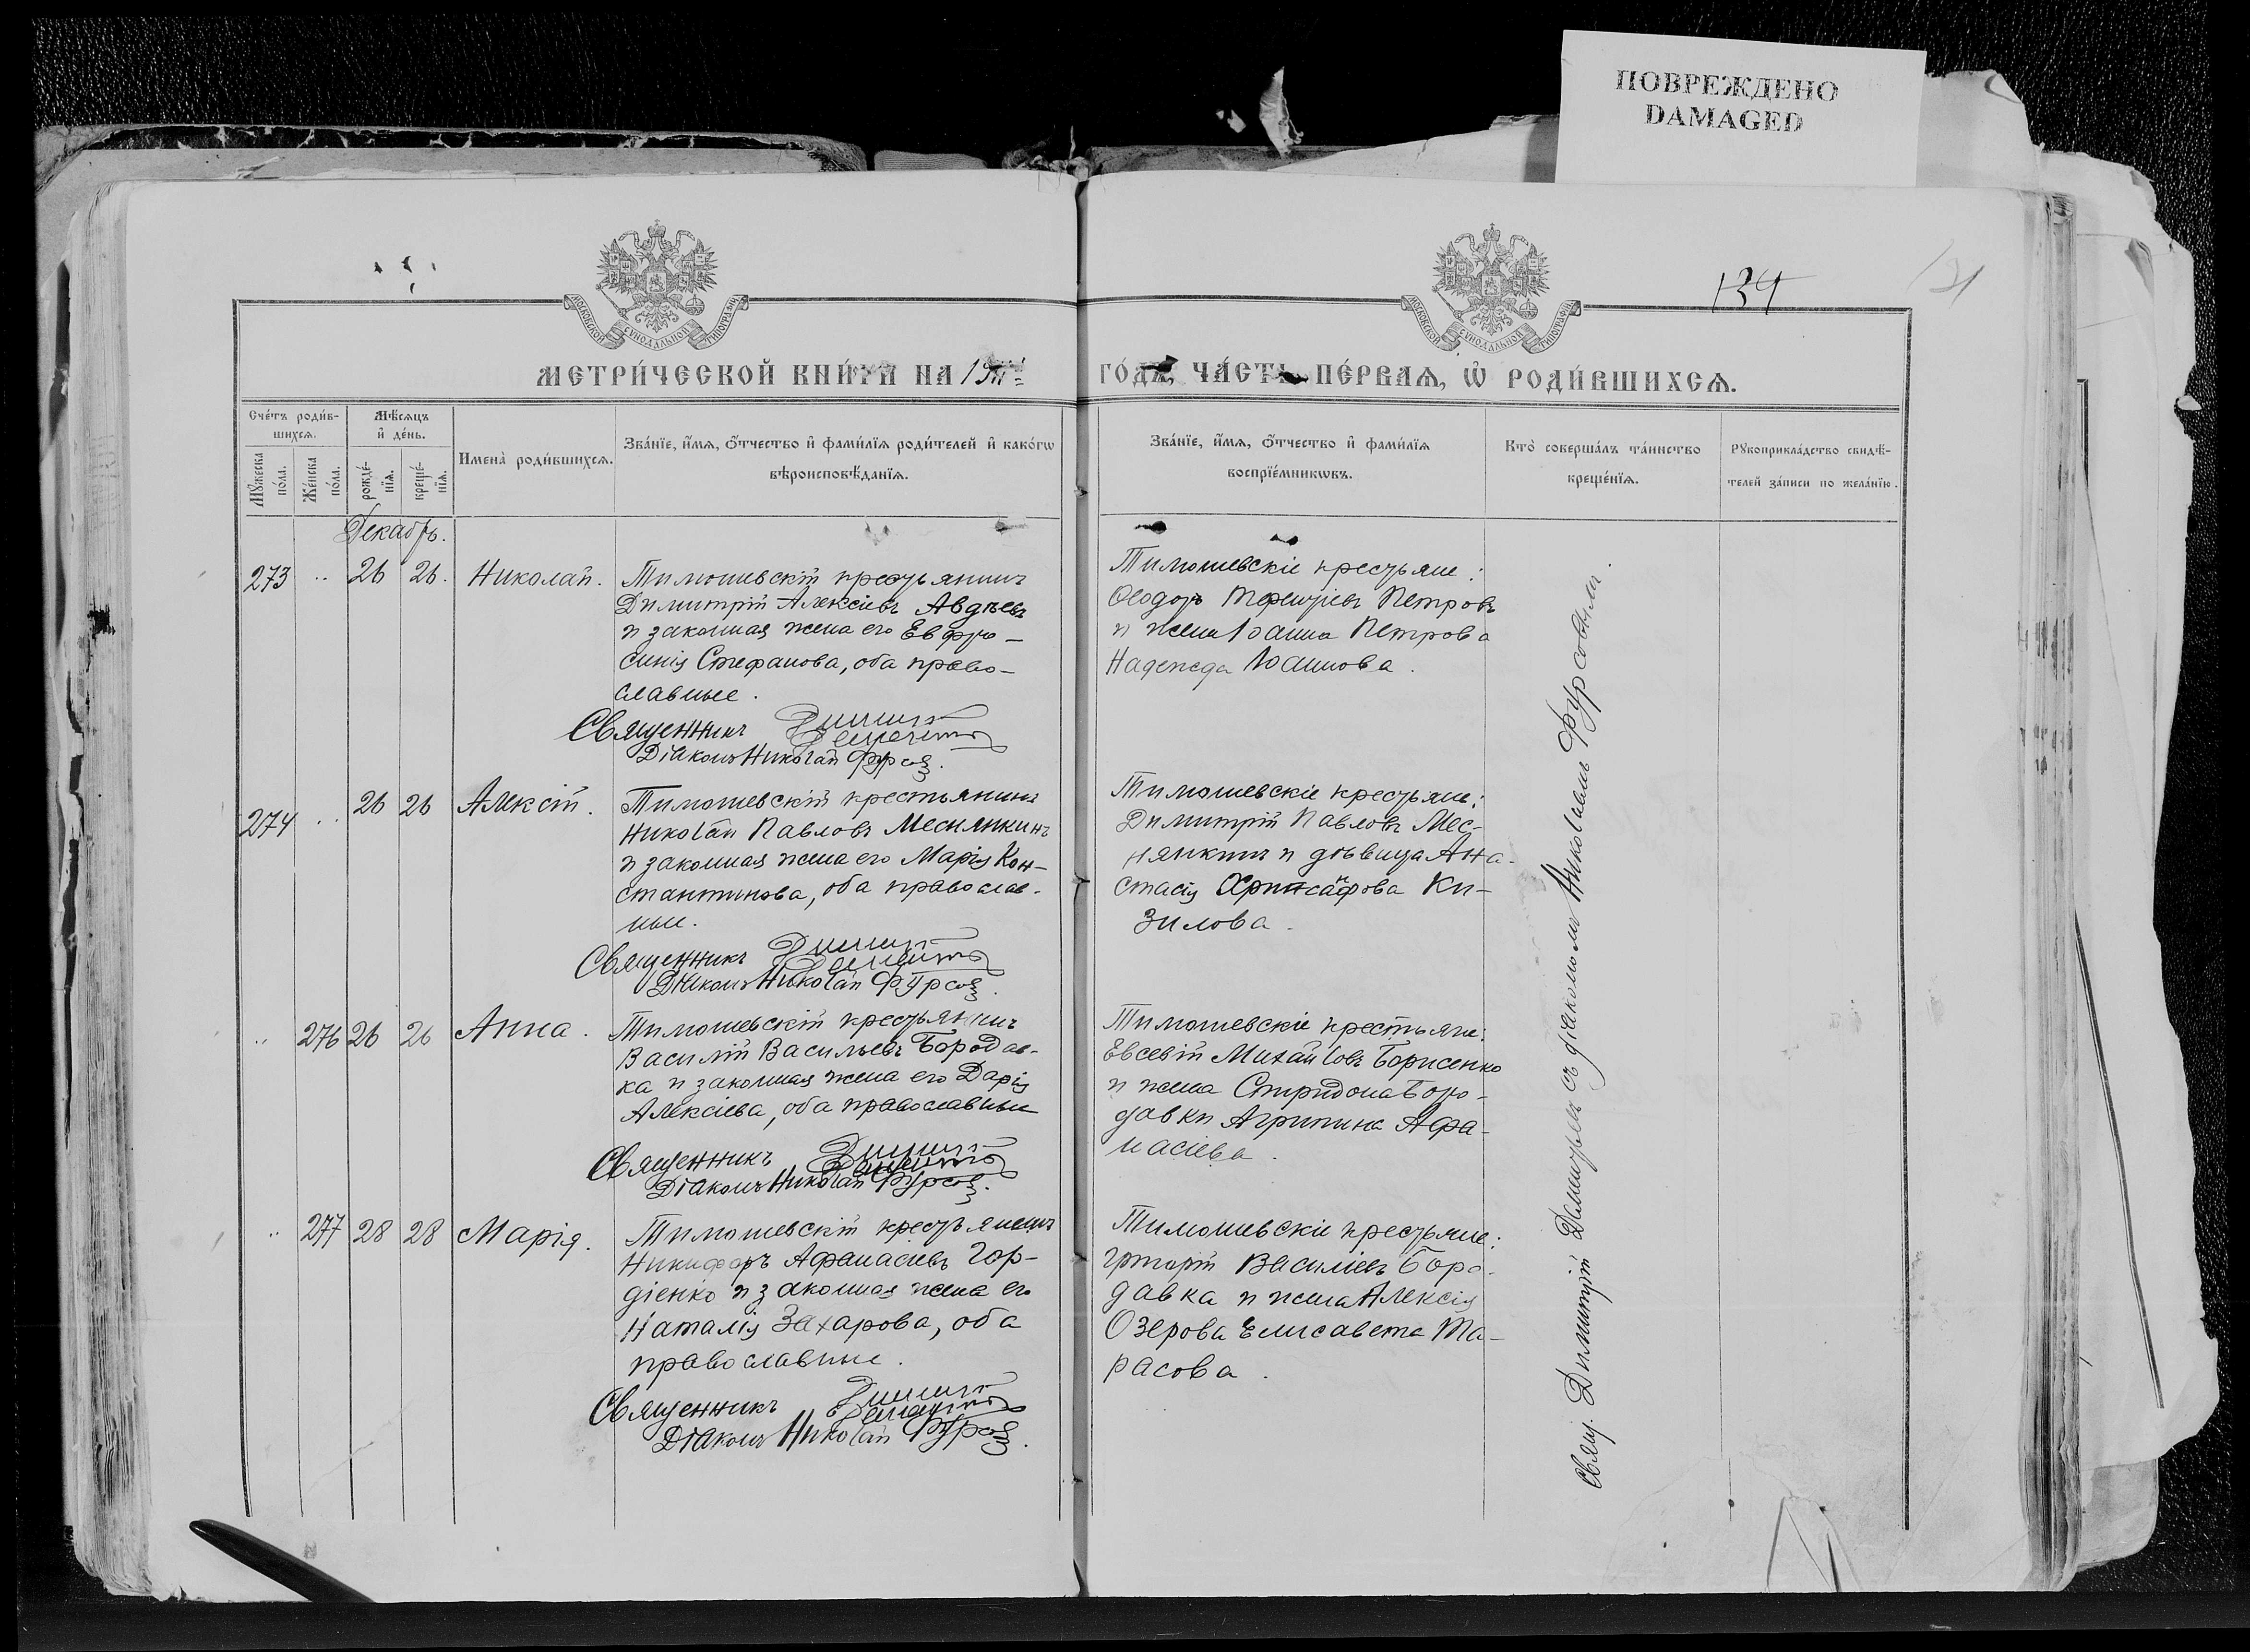 ПОВРЕЖДЕНО
DAMAGED
МОСКОВСКОЙ СѴНОДАЛЬНОЙ ТИПОГРАФІИ
МОСКОВСКОЙ СѴНОДАЛЬНОЙ ТИПОГРАФІИ
134
МЕТРИ́ЧЕСКОЙ КНИ́ГИ НА
ГО́ДЪ, ЧА́СТЬ ПЕ́РВАѦ, Ѡ РОДИ́ВШИХСѦ.
Сче́тъ роди́в-
шихсѧ.
Мѣ́сѧцъ
и҆ де́нь.
Мꙋ́жеска
по́ла.
Же́нска
по́ла.
рожде́-
нїѧ.
креще́-
нїѧ.
Имена̀ роди́вшихсѧ.
Зва́нїе, и҆́мѧ, ѻ҆́тчество и҆ фами́лїѧ роди́телей и҆ како́гѡ
вѣроисповѣ́данїѧ.
Зва́нїе, и҆́мѧ, ѻ҆́тчество и҆ фами́лїѧ
воспрїе́мникѡвъ.
Кто̀ соверша́лъ та́инство
креще́нїѧ.
Рꙋкоприкла́дство свидѣ́-
телей за́писи по жела́нїю.
Декабрь.
273 .. 26 26. Николай.
Тимошевскій крестьянинъ
Димитрій Алексіевъ Авдѣевъ
и законная жена его Евфро-
синія Стефанова, оба право-
славные.
Священникъ
Діаконъ Николай Фурсовъ.
Тимошевскіе крестьяне:
Ѳеодоръ Терентіевъ Петровъ
и жена Іоанна Петрова
Надежда Іоаннова.
274 .. 26 26 Алексій.
Тимошевскій крестьянинъ
Николай Павловъ Меснянкинъ
и законная жена его Марія Кон-
стантинова, оба православ-
ные.
Священникъ
Діаконъ Николай Фурсовъ.
Тимошевскіе крестьяне:
Димитрій Павловъ Мес-
нянкинъ и дѣвица Ана-
стасія Хрисанфова Ки-
зилова.
.. 276 26 26 Анна.
Тимошевскій крестьянинъ
Василій Васильевъ Бородав-
ка и законная жена его Дарія
Алексіева, оба православные
Священникъ
Діаконъ Николай Фурсовъ.
Тимошевскіе крестьяне:
Евсевій Михайловъ Борисенко
и жена Спиридона Боро-
давки Агрипина Афа-
насіева.
.. 277 28 28 Марія.
Тимошевскій крестьянинъ
Никифоръ Афанасіевъ Гор-
діенко и законная жена его
Наталія Захарова, оба
православные.
Священникъ
Діаконъ Николай Фурсовъ.
Тимошевскіе крестьяне:
Григорій Василіевъ Боро-
давка и жена Алексія
Озерова Елисавета Та-
расова.
Свящ. Димитрій
съ діакономъ Николаемъ Фурсовымъ.